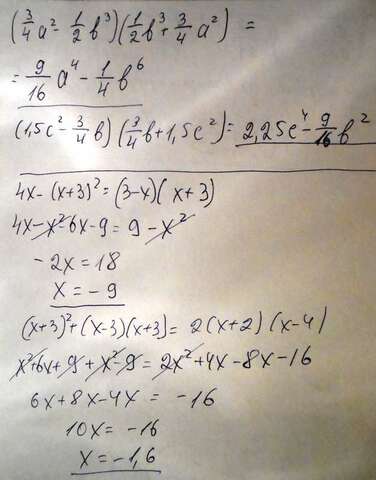 (3/4 a² - 1/2 b³)(1/2 b³ + 3/4 a²) =
= 9/16 a⁴ - 1/4 b⁶
(1,5c² - 3/4 b)(3/4 b + 1,5c²) = 2,25c⁴ - 9/16 b²
4x - (x+3)² = (3-x)(x+3)
4x - x² - 6x - 9 = 9 - x²
-2x = 18
x = -9
(x+3)² + (x-3)(x+3) = 2(x+2)(x-4)
x² + 6x + 9 + x² - 9 = 2x² + 4x - 8x - 16
6x + 8x - 4x = -16
10x = -16
x = -1,6